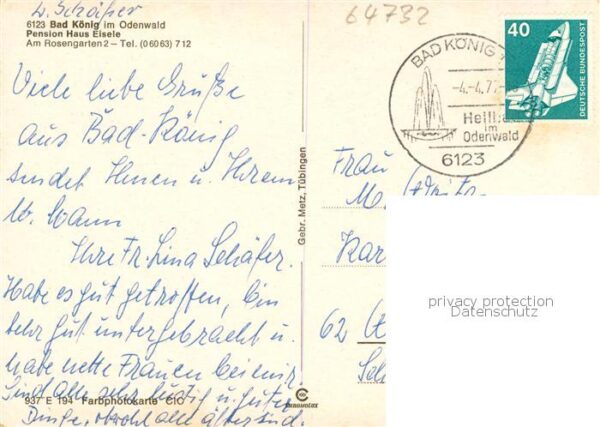 L. Schäfer
6123 Bad König im Odenwald
Pension Haus Eisele
Am Rosengarten 2 – Tel. (06063) 712
Viele liebe Grüße
aus Bad-König
sendet Ihnen u. Ihrem
W. Mann
Ihre Fr. Lina Schäfer.
Habe es gut getroffen, bin
sehr gut untergebracht u.
habe nette Frauen bei mir
Sind alle sehr lustig u. guter
Dinge, obwohl alle älter sind.
937 E 194 Farbphotokarte CIC
Gebr. Metz, Tübingen
64732
BAD KÖNIG
-4.-4.7
Heilb
im
Odenwald
6123
40
DEUTSCHE BUNDESPOST
Frau
M.
Kar
62
privacy protection
Datenschutz